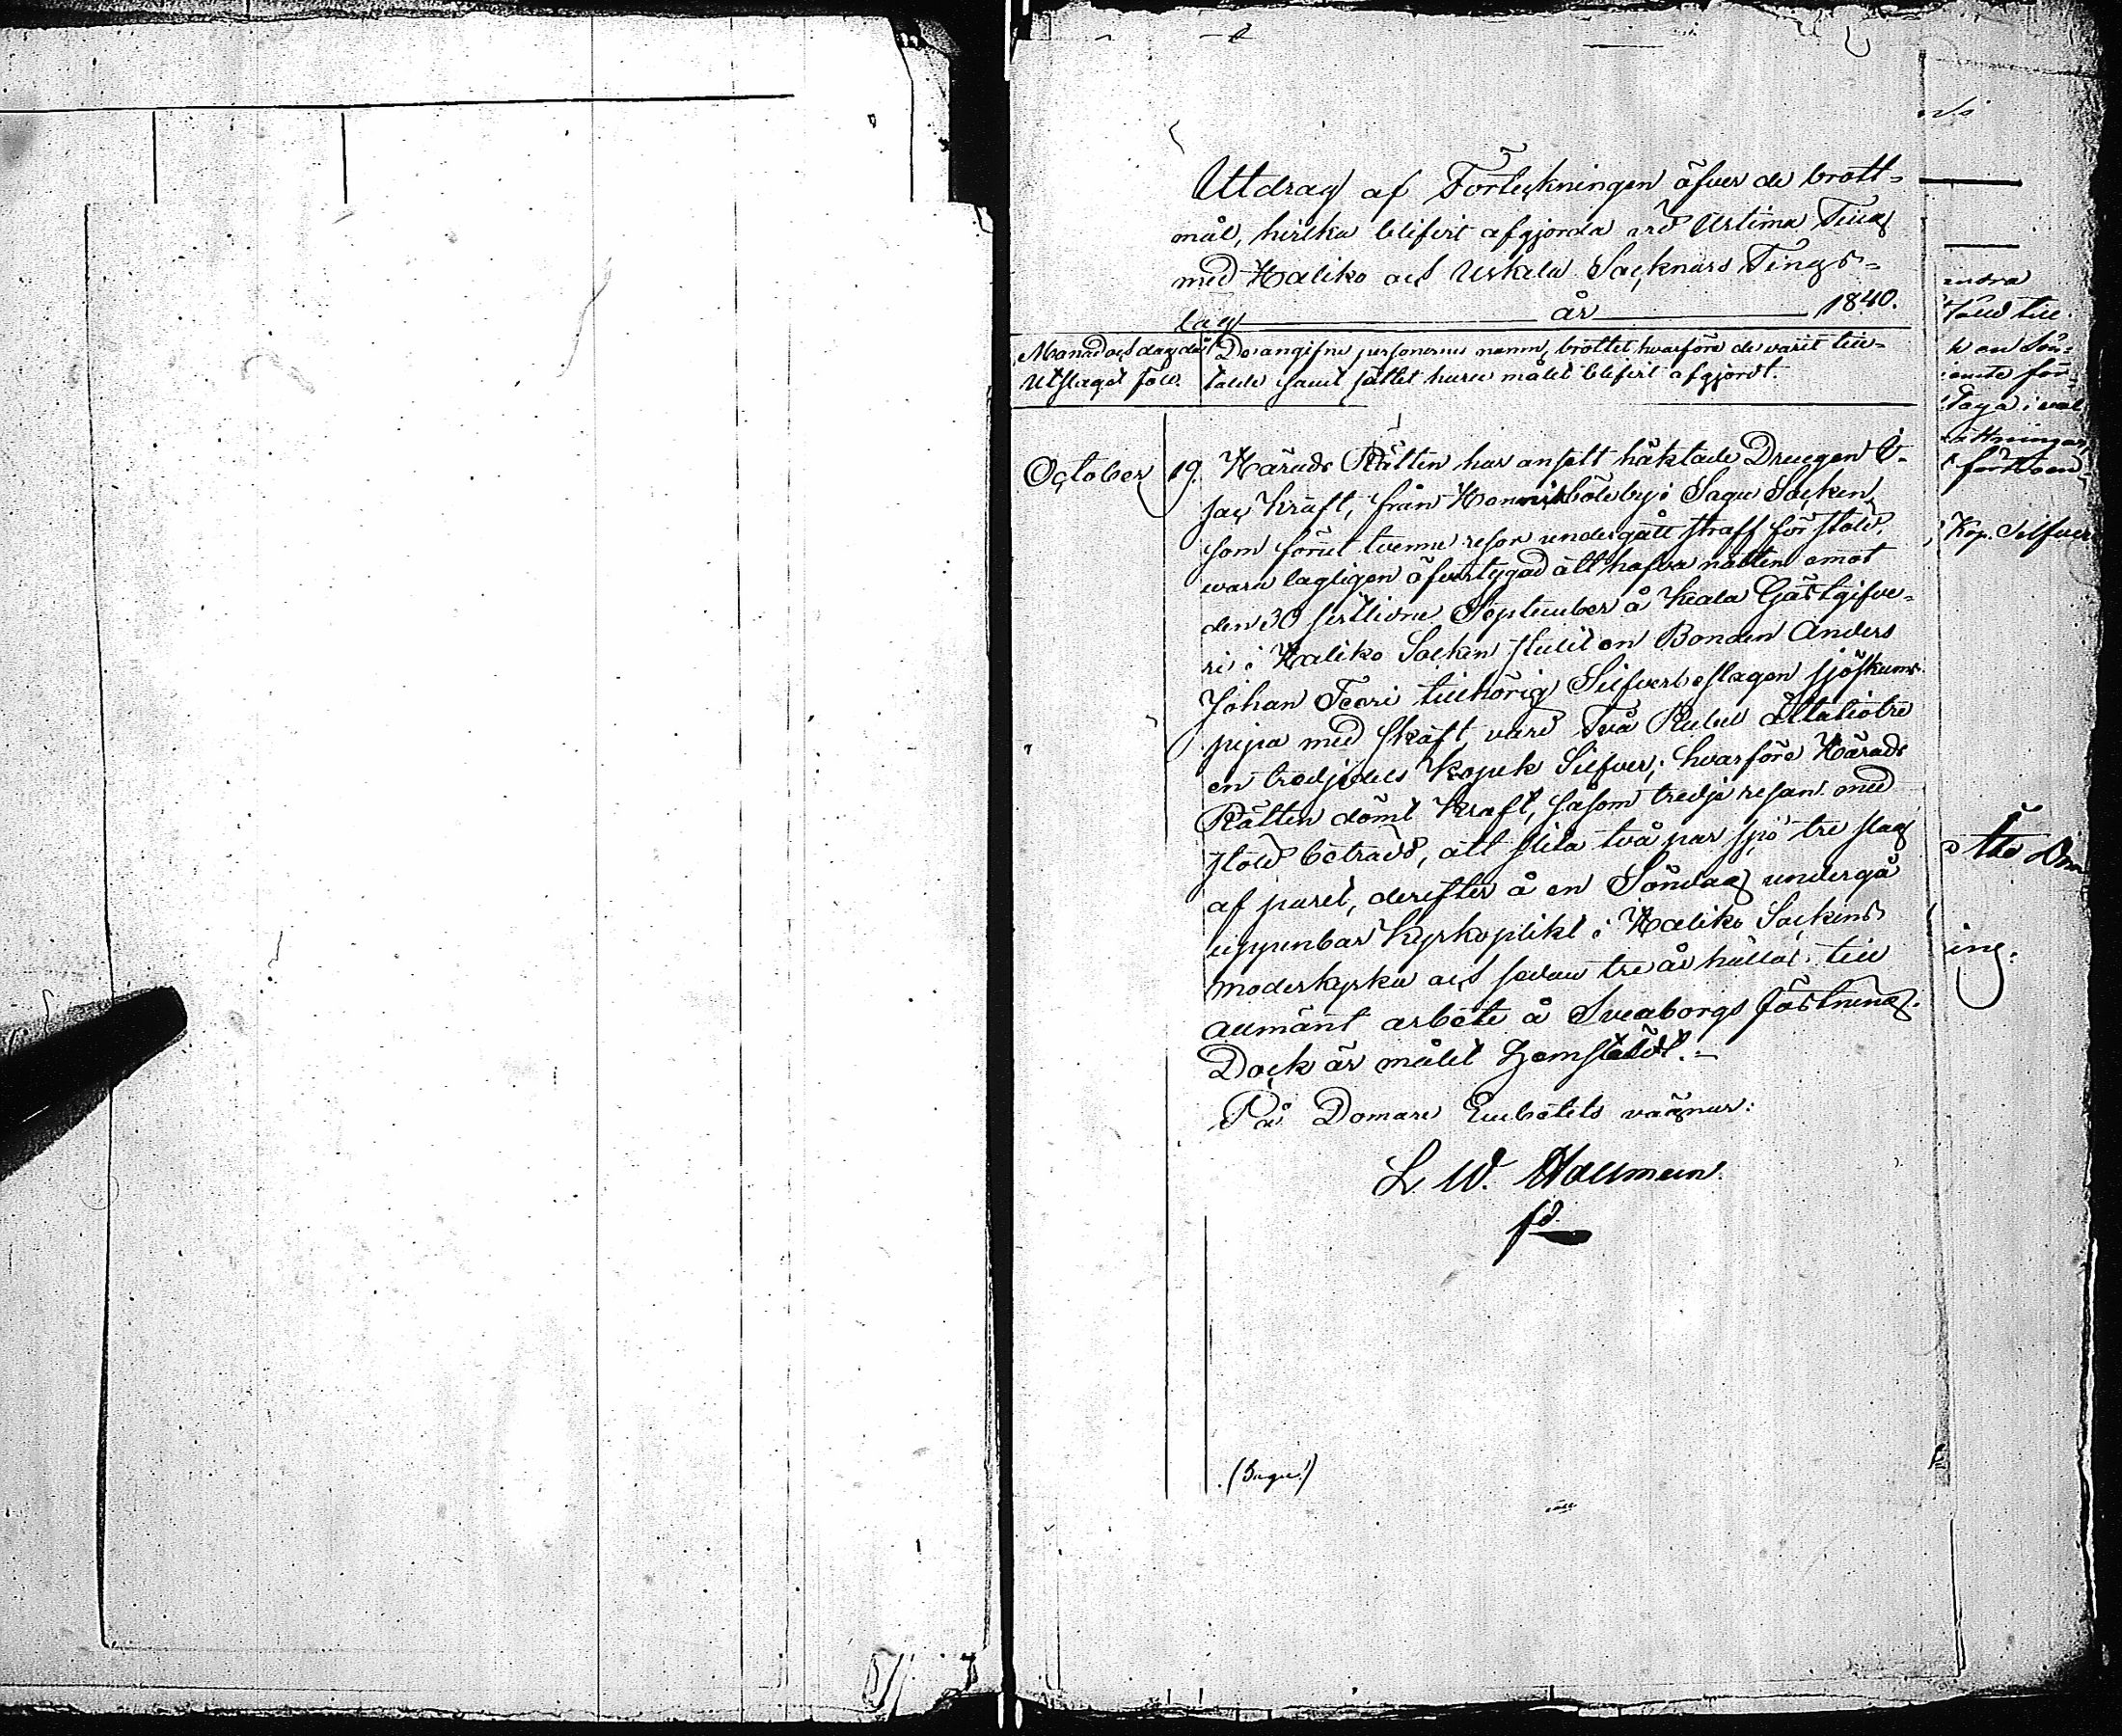 Utdrag af Förteckningen öfver de brott-
mål, hvilka blifvit afgjorda vid Urtima Ting
med Haliko och Uskela Socknars Tings-
lag år 1840.
Månad och dag då
Utslaget föll.
De angifne personernes namn, brottet hvarföre de varit till-
talde samt sättet huru målet blifvit afgjordt.
October 19. Härads Rätten har ansett häktade Drengen I-
sac Kräft, från Honnisböle by i Sagu Socken,
som förut tvenne resor undergått straff för stöld,
vara lagligen öfvertygad att hafva natten emot
den 30 sistlidne September å Heala Gästgifve-
ri i Haliko Socken stulit en Bonden Anders
Johan Teori tillhörig Silfverbeslagen sjöskums-
pipa med skaft, värd Två Rubel åttatiotre
en tredjedels Kopek Silfver; hvarföre Härads
Rätten dömt Kräft, såsom tredje resan med
stöld beträdd, att slita två par spö tre slag
af paret, derefter å en Söndag undergå
uppenbar Kyrkoplikt i Haliko Sockens
moderkyrka och sedan tre år hållas till
allmänt arbete å Sveaborgs fästning.
Dock är målet Hemstäldt.
På Domare Embetets vägnar:
L. W. Hallman.
(Sagu!)
andra
töld till
k en Sön-
taga i val
Kop. Silfver
ing.